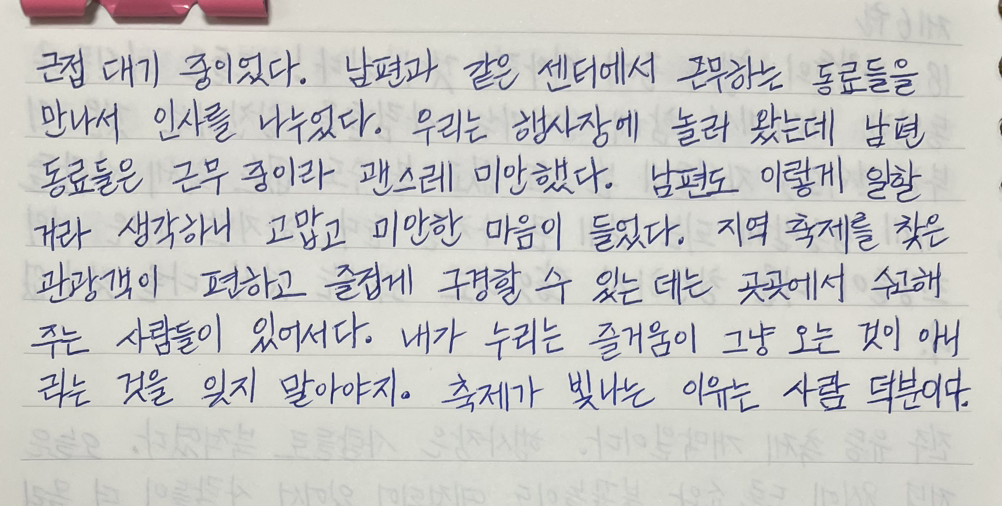 근접 대기 중이었다. 남편과 같은 센터에서 근무하는 동료들을
만나서 인사를 나누었다. 우리는 행사장에 놀러 왔는데 남편
동료들은 근무 중이라 괜스레 미안했다. 남편도 이렇게 일할
거라 생각하니 고맙고 미안한 마음이 들었다. 지역 축제를 찾은
관광객이 편하고 즐겁게 구경할 수 있는 데는 곳곳에서 수고해
주는 사람들이 있어서다. 내가 누리는 즐거움이 그냥 오는 것이 아니
라는 것을 잊지 말아야지. 축제가 빛나는 이유는 사람 덕분이다.